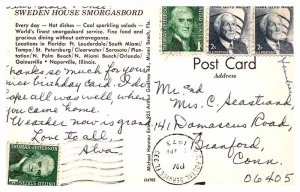 SWEDEN HOUSE SMORGASBORD
Every day - Hot dishes - Cool sparkling salads -
World's finest smorgasbord service. Fine food and
gracious dining without extravagance.
Locations in Florida: Ft. Lauderdale/South Miami/
Tampa/ St. Petersburg/Clearwater/Sarasota/
Beach/N. Miami Beach/Orlando/
Gainesville • Naperville, Illinois.
Thanks so much for your
nice birthday card. I do
all was well when
you came home.
Weather now is grand.
Love to all,
Alva
THOMAS JEFFERSON
1¢
2¢
2¢
Post Card
Address
Mr and
Mrs C. Heastrand
141 Damascus Road
Branford,
Conn.
06405
PM
1973